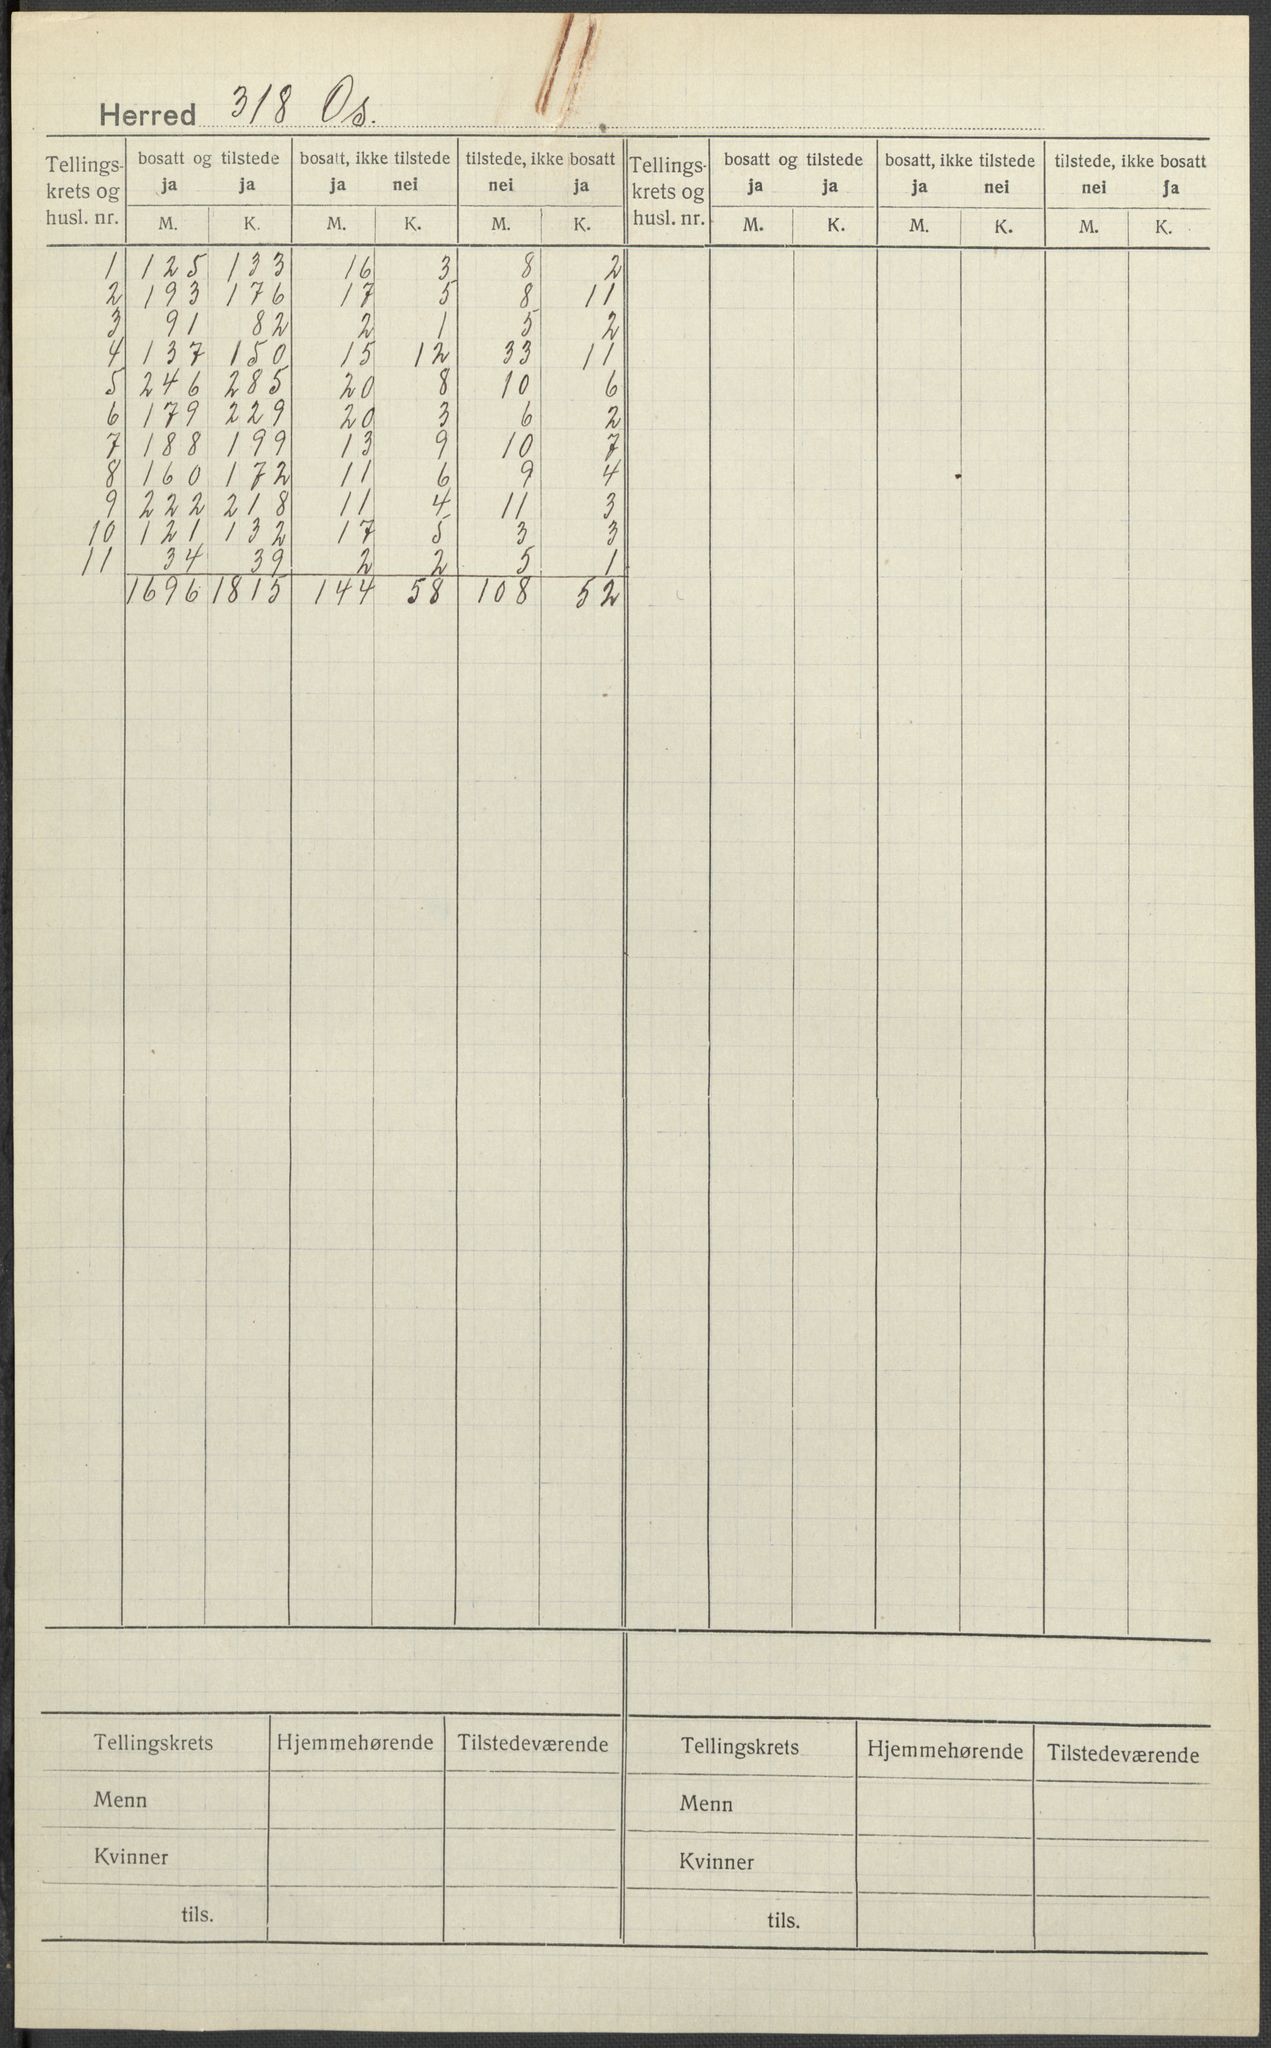 Herred 318 Os.
Tellingskrets og husl. nr. | bosatt og tilstede | bosatt, ikke tilstede | tilstede, ikke bosatt | Tellingskrets og husl. nr. | bosatt og tilstede | bosatt, ikke tilstede | tilstede, ikke bosatt
ja ja | ja nei | nei ja | ja ja | ja nei | nei ja
M. K. M. K. M. K. M. K. M. K. M. K.
1 125 133 16 3 8 2
2 193 176 17 5 8 11
3 91 82 2 1 5 2
4 137 150 15 12 33 11
5 246 285 20 8 10 6
6 179 229 20 3 6 2
7 188 199 13 9 10 7
8 160 172 11 6 9 4
9 222 218 11 4 11 3
10 121 132 17 5 3 3
11 34 39 2 2 5 1
1696 1815 144 58 108 52
Tellingskrets Hjemmehørende Tilstedeværende Tellingskrets Hjemmehørende Tilstedeværende
Menn Menn
Kvinner Kvinner
tils. tils.